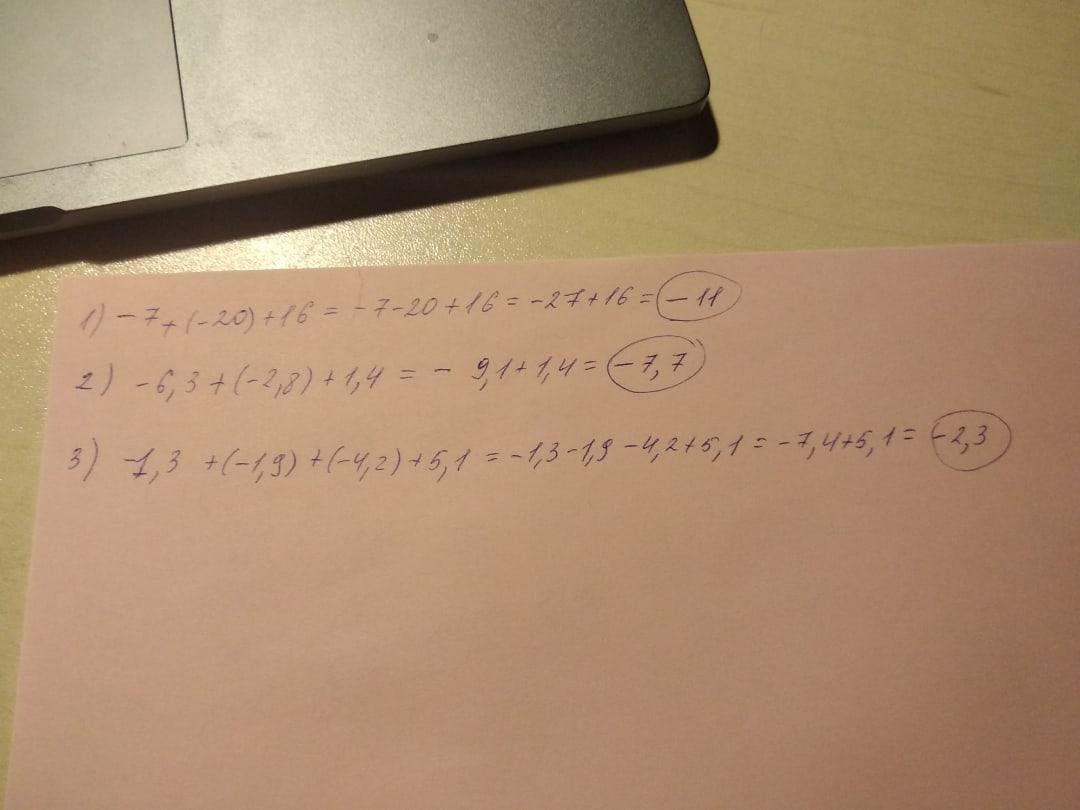 1) -7+(-20)+16 = -7-20+16 = -27+16 = -11
2) -6,3+(-2,8)+1,4 = - 9,1+1,4 = -7,7
3) -1,3 +(-1,9)+(-4,2)+5,1 = -1,3-1,9-4,2+5,1 = -7,4+5,1 = -2,3